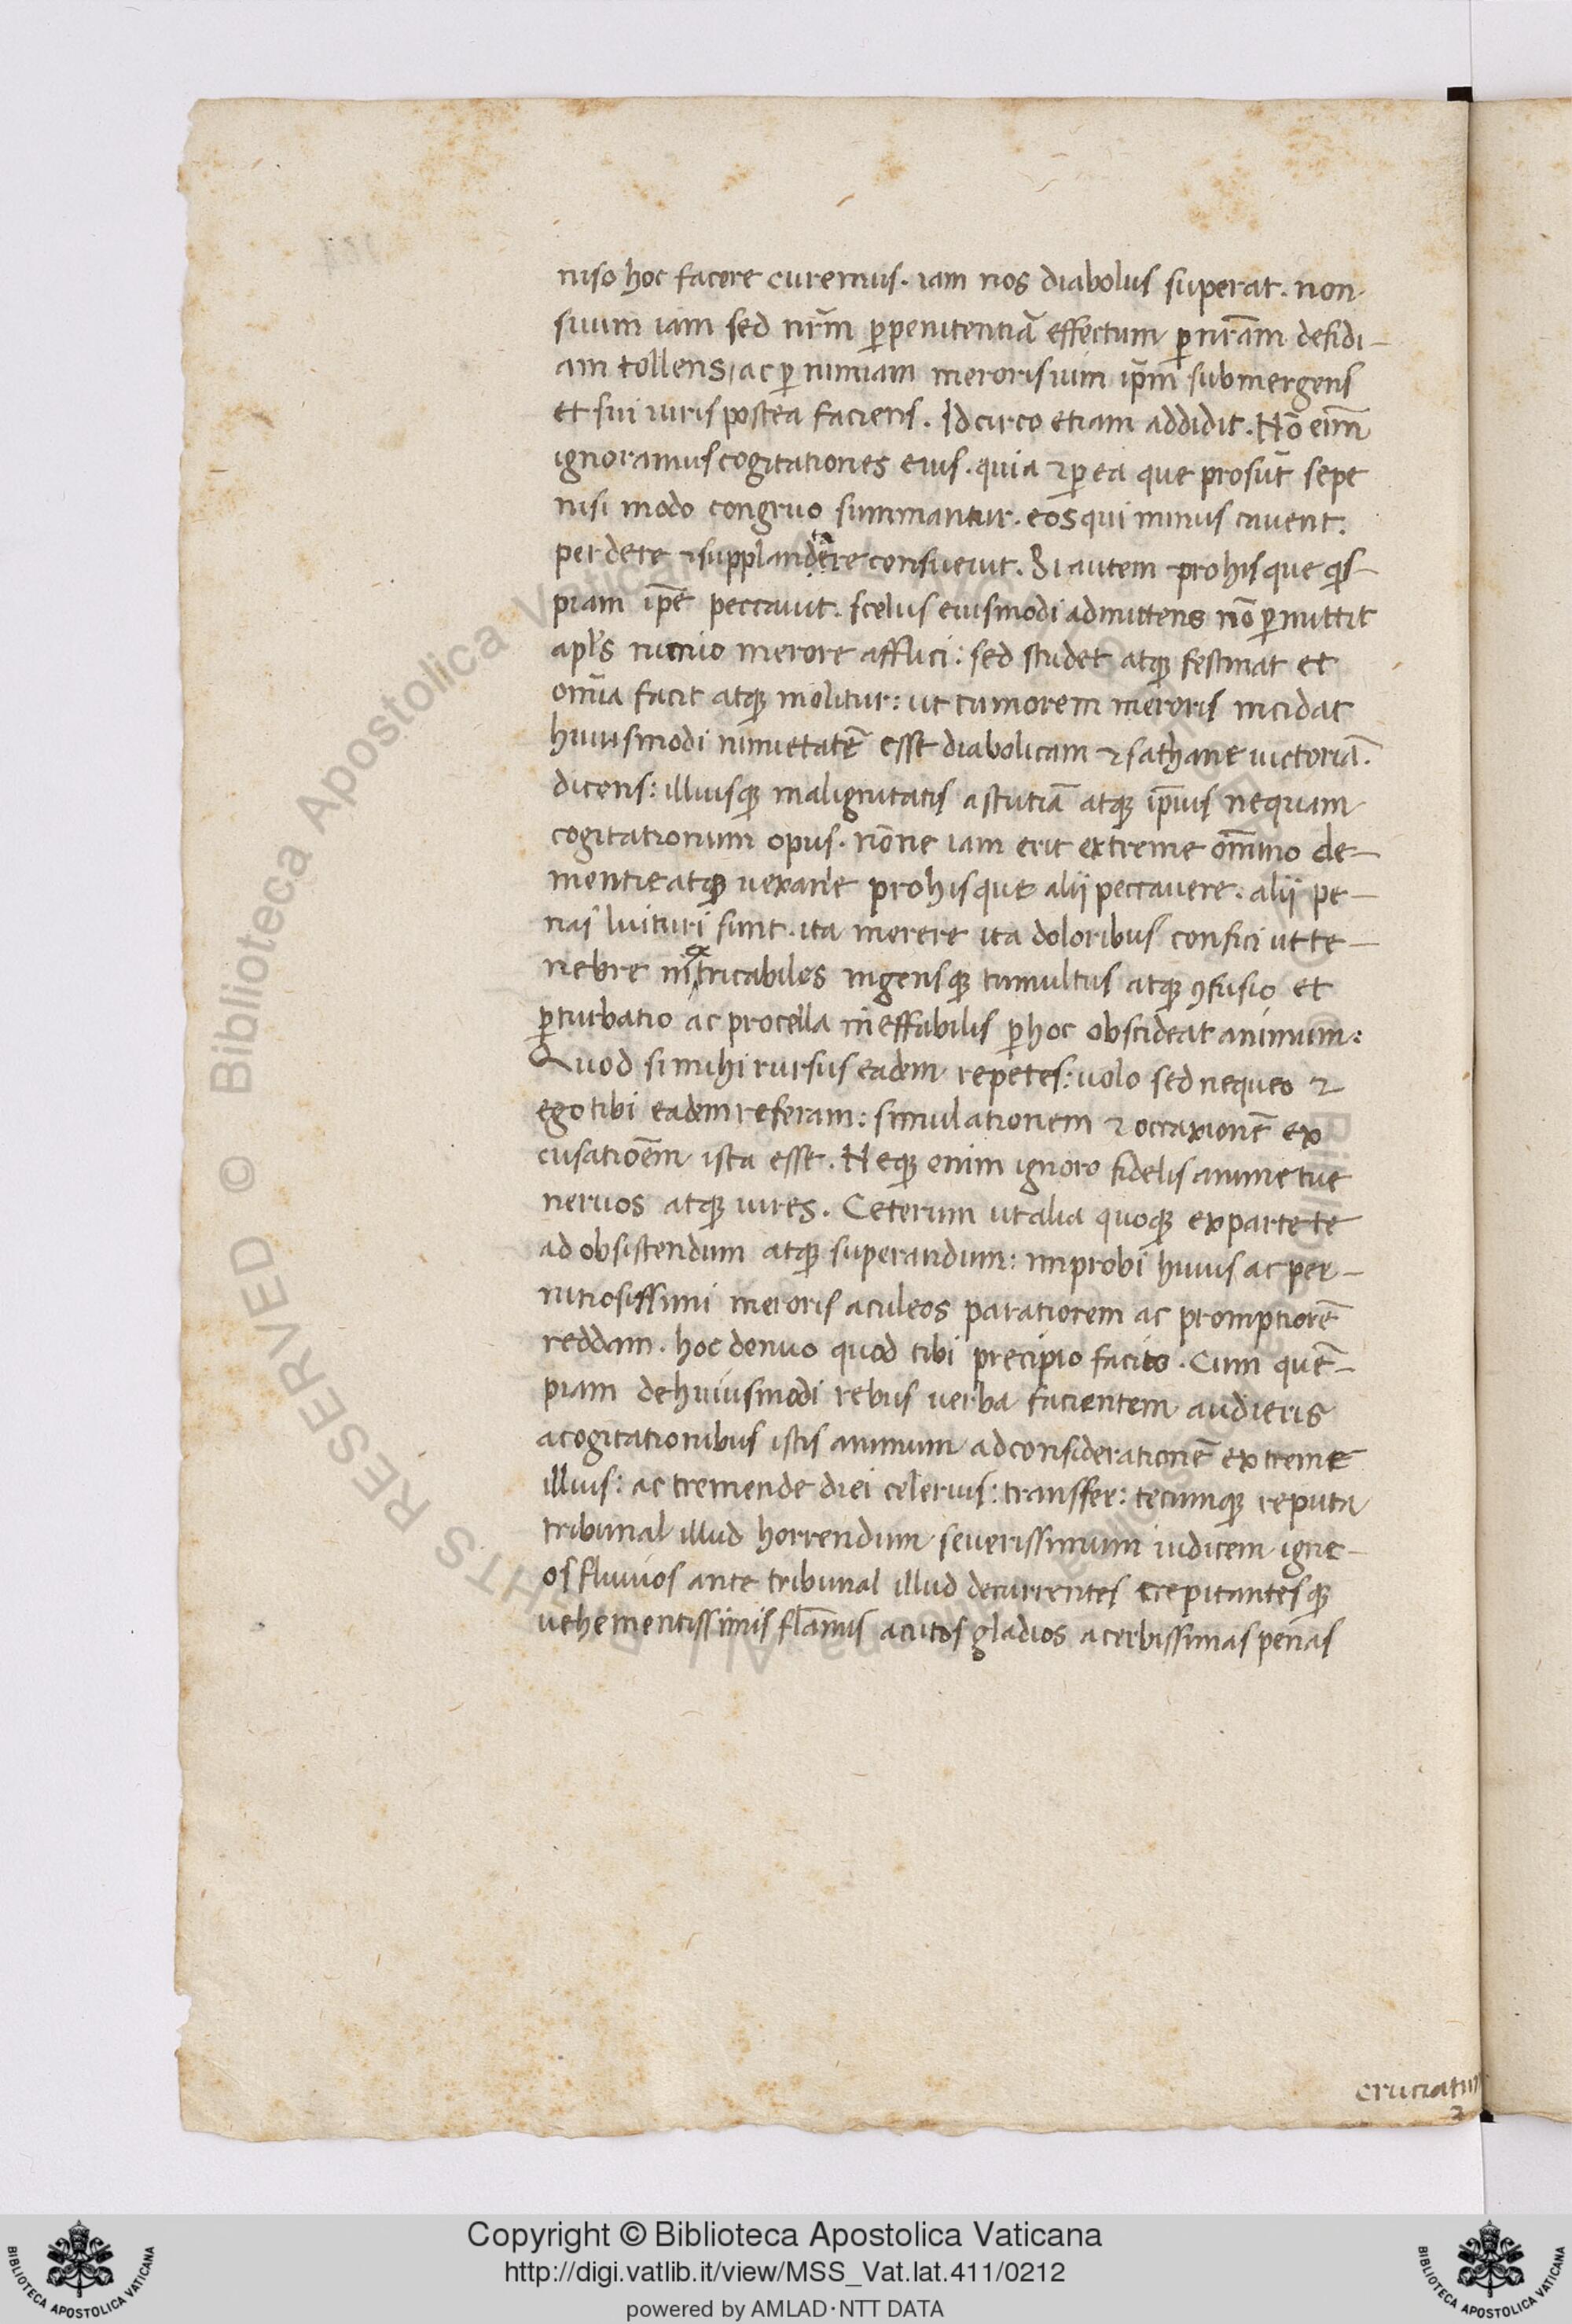 niso hoc facere curemus. iam nos diabolus superat. non
suum iam sed nr̄m ꝑpenitentiā effectum ꝑ nr̄am desidi-
am tollens, ac ꝑ nimiam meroris uim ip̄m submergens
et sui iuris postea faciens. Idcirco etiam addidit. Nō eīm
ignoramus cogitationes eius. quia ⁊ ꝑ ea que prosūt sepe
nisi modo congruo summantur. eos qui minus cauent.
perdere ⁊ supplandere consueuit. Si autem pro his que qis-
piam ip̄e peccauit. scelus eiusmodi admittens nō ꝑmittit
apl's nimio merore afflici: sed studet atqꝫ festinat et
om̄ia facit atqꝫ molitur: ut tumorem meroris incidat
huiusmodi nimietatē esse diabolicam ⁊ sathane uictoriā.
dicens: illiusqꝫ malignitatis astutiā atqꝫ ip̄ius nequam
cogitationum opus. nōne iam erit extreme om̄ino de-
mentie atqꝫ uexanie pro his que alij peccauere. alij pe-
nas luituri sunt. ita merere ita doloribus confici ut te-
nebre inextricabiles ingensqꝫ tumultus atqꝫ ꝯfusio et
ꝑturbatio ac procella ineffabilis ꝑ hoc obscideat animum:
Quod si mihi rursus eadem repetes: uolo sed nequeo ⁊
ego tibi eadem referam: simulationem ⁊ occaxionē ex
cusatiōem ista esse. Neqꝫ enim ignoro fidelis anime tue
neruos atqꝫ uires. Ceterum ut alia quoqꝫ ex parte te
ad obsistendum atqꝫ superandum: improbi huius ac per-
nitiosissimi meroris aculeos paratiorem ac promptiorē
reddam. hoc denuo quod tibi precipio facito. Cum quē-
piam de huiusmodi rebus uerba facientem audieris
a cogitationibus istis animum ad considerationē extreme
illius: ac tremende diei celerius: transffer: tecumqꝫ reputa
tribunal illud horrendum seuerissimum iudicem igne-
os fluuios ante tribunal illud decurrentes crepitantesqꝫ
uehementissimis flāmis acutos gladios acerbissimas penas
cruciatus
Copyright © Biblioteca Apostolica Vaticana
http://digi.vatlib.it/view/MSS_Vat.lat.411/0212
powered by AMLAD·NTT DATA
BIBLIOTECA APOSTOLICA VATICANA
BIBLIOTECA APOSTOLICA VATICANA